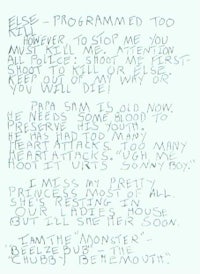 ELSE - PROGRAMMED TOO
KILL
HOWEVER, TO STOP ME YOU
MUST KILL ME. ATTENTION
ALL POLICE: SHOOT ME FIRST-
SHOOT TO KILL OR ELSE.
KEEP OUT OF MY WAY OR
YOU WILL DIE!
PAPA SAM IS OLD NOW.
HE NEEDS SOME BLOOD TO
PRESERVE HIS YOUTH.
HE HAS HAD TOO MANY
HEART ATTACKS. TOO MANY
HEART ATTACKS. "UGH, ME
HOOT IT URTS SONNY BOY."
I MISS MY PRETTY
PRINCESS MOST OF ALL.
SHE'S RESTING IN
OUR LADIES HOUSE
BUT I'LL SHE HER SOON.
I AM THE "MONSTER" -
"BEELZEBUB" - THE
"CHUBBY BEHEMOUTH."